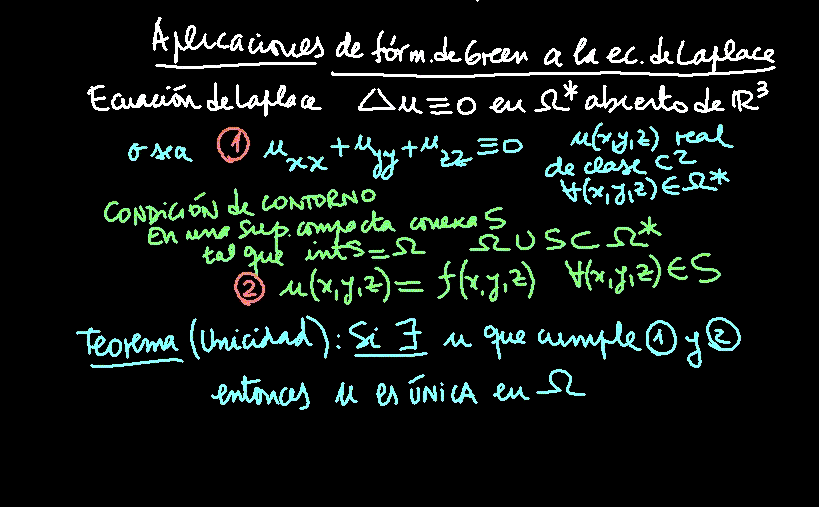 Aplicaciones de fórm. de Green a la ec. de Laplace
Ecuación de Laplace Δu≡0 en Ω* abierto de ℝ³
o sea ① u_xx + u_yy + u_zz ≡ 0 u(x,y,z) real
de clase C²
∀(x,y,z) ∈ Ω*
CONDICIÓN de CONTORNO
En una sup. compacta conexa S
tal que int S = Ω Ω ∪ S ⊂ Ω*
② u(x,y,z) = f(x,y,z) ∀(x,y,z) ∈ S
Teorema (Unicidad): Si ∃ u que cumple ① y ②
entonces u es ÚNICA en Ω